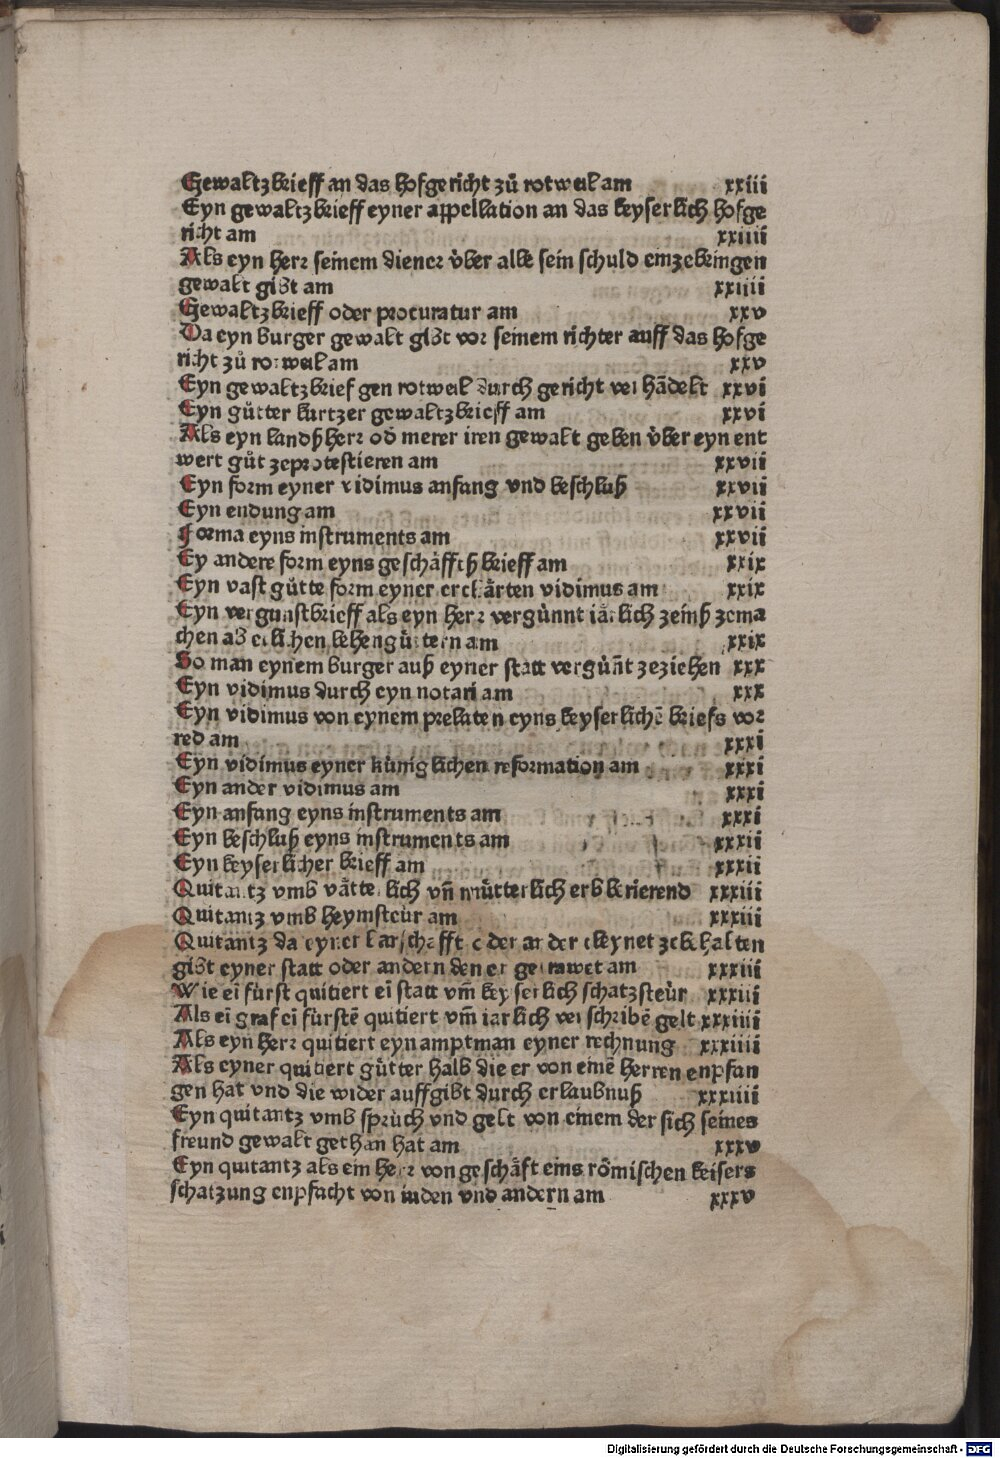 Gewaltzbrieff an das hofgericht zů rotweil am xxiii
Eyn gewaltzbrieff eyner appellation an das keyserlich hofge
richt am xxiiii
Als eyn herr seinem diener v̈ber alle sein schuld einzebringen
gewalt gibt am xxiiii
Gewaltzbrieff oder procuratur am xxv
Da eyn burger gewalt gibt vor seinem richter auff das hofge
richt zů rotweil am xxv
Eyn gewaltzbrief gen rotweil durch gericht verhãdelt xxvi
Eyn gůtter kurtzer gewaltzbrieff am xxvi
Als eyn landßherr oď merer iren gewalt geben v̈ber eyn ent
wert gůt zeprotestieren am xxvii
Eyn form eyner vidimus anfang vnd beschluß xxvii
Eyn endung am xxvii
Forma eyns instruments am xxvii
Ey andere form eyns geschäfftß brieff am xxix
Eyn vast gůtte form eyner erclärten vidimus am xxix
Eyn vergunstbrieff als eyn herr vergünnt iärlich zeinß zema
chen ab etlichen lehengüttern am xxix
So man eynem burger auß eyner statt vergün̄t zeziehen xxx
Eyn vidimus durch eyn notari am xxx
Eyn vidimus von eynem prelaten eyns keyserlichē briefs vor
red am xxxi
Eyn vidimus eyner küniglichen reformation am xxxi
Eyn ander vidimus am xxxi
Eyn anfang eyns instruments am xxxi
Eyn beschluß eyns instruments am xxxii
Eyn keyserlicher brieff am xxxii
Quitantz vmb vätterlich vn̄ mütterlich erb berierend xxxiii
Quitantz vmb heymsteür am xxxiii
Quitantz da eyner larschafft oder ander ekeynet zebehalten
gibt eyner statt oder andern den er getrawet am xxxiii
Wie eī fürst quitiert eī statt vm̄ keyserlich schatzsteür xxxiii
Als eī graf eī fürstē quitiert vm̄ iarlich verschribē gelt xxxiiii
Als eyn herr quitiert eyn amptman eyner rechnung xxxiiii
Als eyner quitiert gůtter halb die er von einē herren enpfan
gen hat vnd die wider auffgibt durch erlaubnuß xxxiiii
Eyn quitantz vmb sprüch vnd gelt von einem der sich seines
freund gewalt gethan hat am xxxv
Eyn quitantz als ein herr von geschäft eins römischen keisers
schatzung enpfacht von iuden vnd andern am xxxv
Digitalisierung gefördert durch die Deutsche Forschungsgemeinschaft - DFG